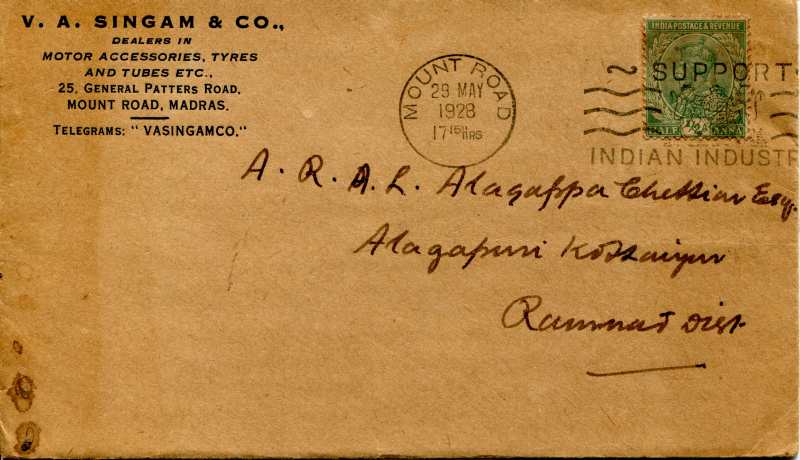 V. A. SINGAM & CO.,
DEALERS IN
MOTOR ACCESSORIES, TYRES
AND TUBES ETC.,
25, GENERAL PATTERS ROAD,
MOUNT ROAD, MADRAS.
TELEGRAMS: "VASINGAMCO."
MOUNT ROAD
29 MAY
1928
17 15 HRS
INDIA POSTAGE & REVENUE
SUPPORT
HALF ½ ANNA
INDIAN INDUSTR
A. R. A. L. Alagappa Chettiar Esq.
Alagapuri Kottaiyur
Ramnad Dist